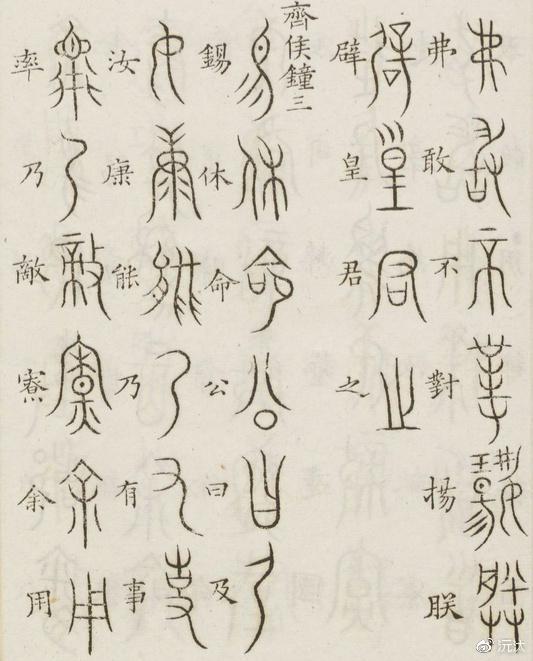 弗敢不對揚朕
辟皇君之
齊侯鐘三
錫休命公曰及
汝康能乃有事
率乃敵寮余用